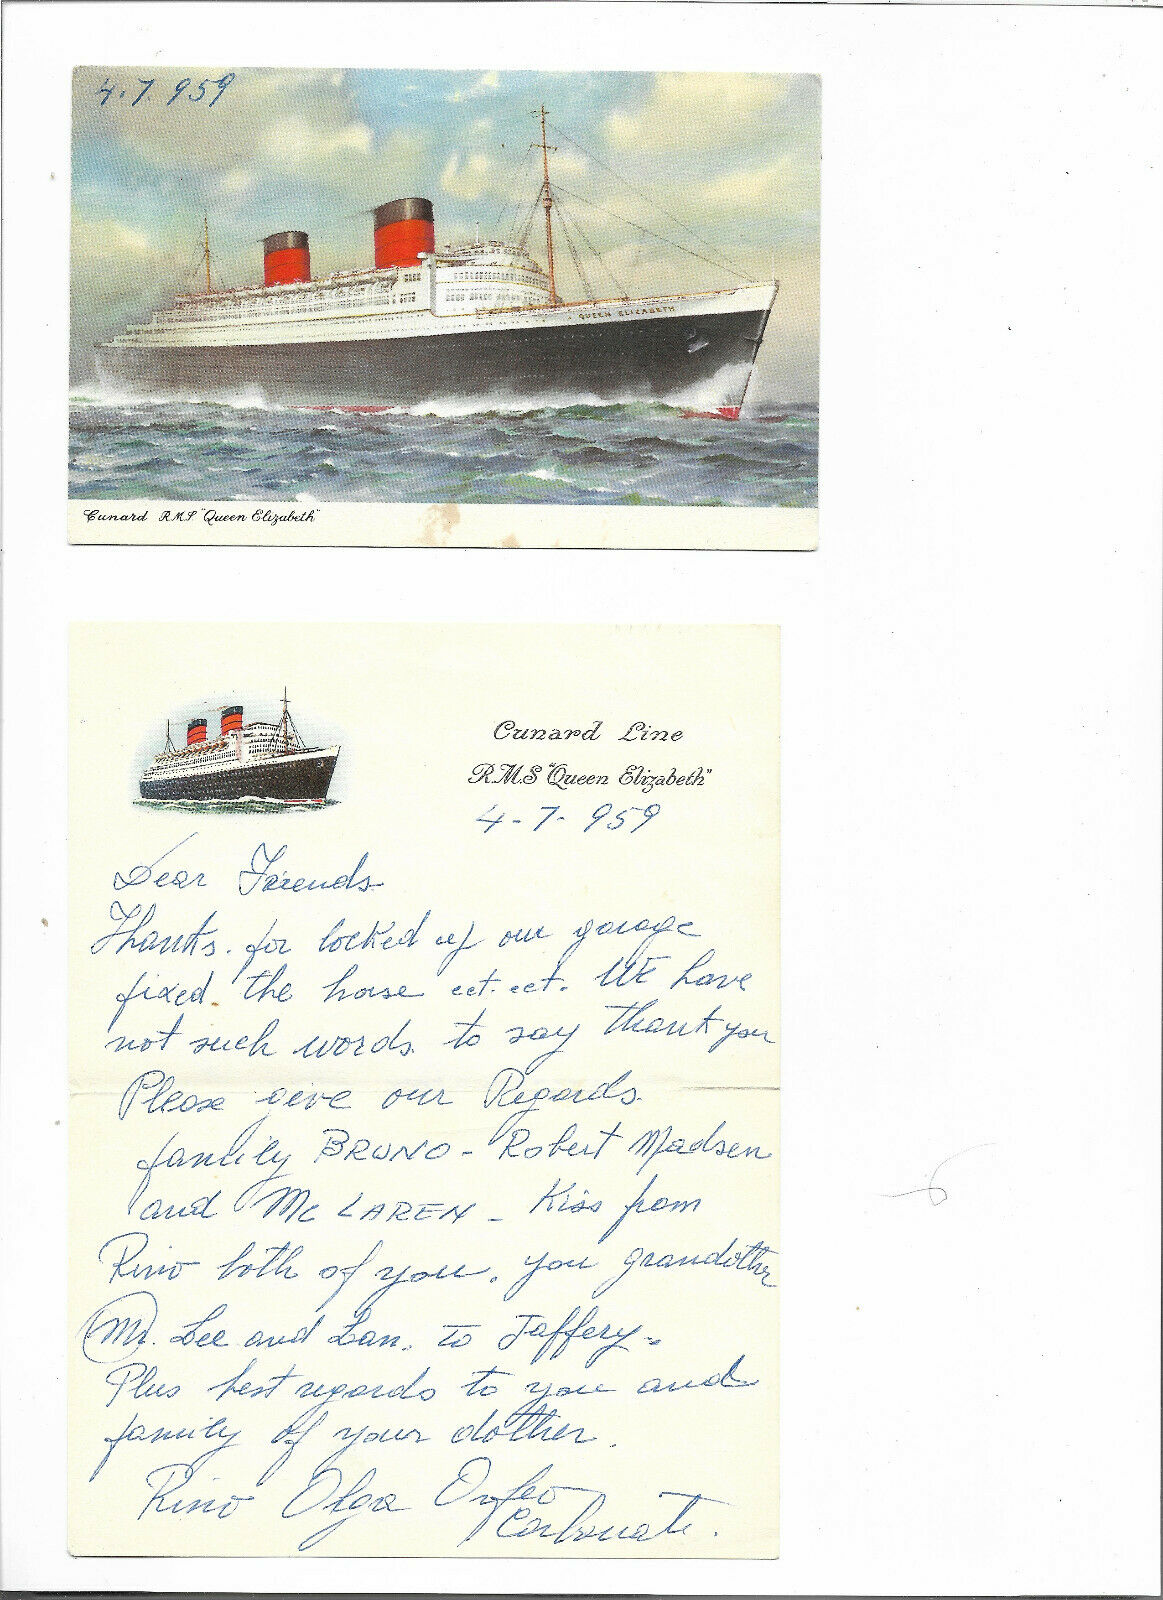 4.7.959
QUEEN ELIZABETH
Cunard R.M.S "Queen Elizabeth"
Cunard Line
R.M.S "Queen Elizabeth"
4-7-959
Dear Friends
Thanks. for locked up our garage
fixed. the hose ect. ect. We have
not such words. to say thank you
Please give our Regards.
family BRUNO - Robert Madsen
and Mc LAREN - Kiss from
Rino both of you. you grandother
Mr. Lee and Lan. to Jaffery -
Plus best regards to you and
family of your dother.
Rino Olga Orfeo
Carbonati.